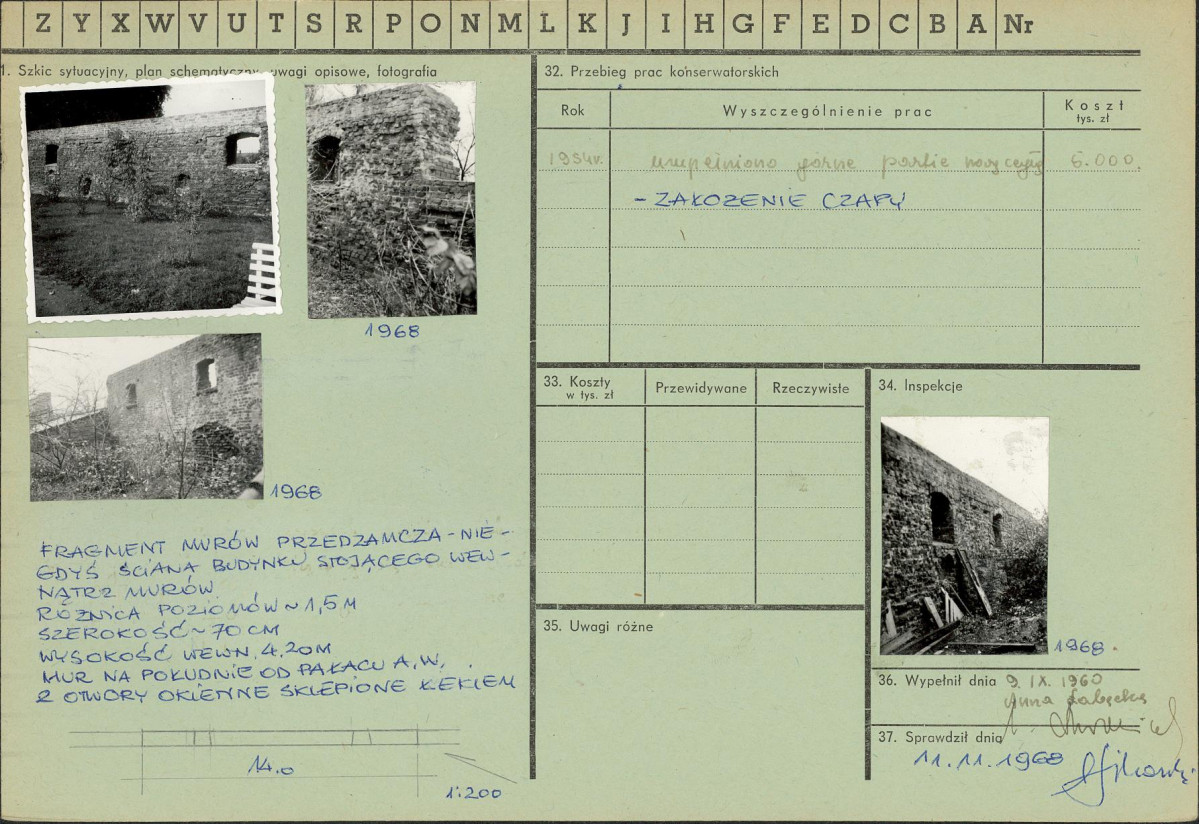 Z Y X W V U T S R P O N M L K J I H G F E D C B A Nr
1. Szkic sytuacyjny, plan schematyczny, uwagi opisowe, fotografia
1968
1968
FRAGMENT MURÓW PRZEDZAMCZA - NIE-
GDYŚ ŚCIANA BUDYNKU STOJĄCEGO WEW-
NĄTRZ MURÓW.
RÓŻNICA POZIOMÓW ~ 1,5 M
SZEROKOŚĆ ~ 70 CM
WYSOKOŚĆ WEWN. 4.20M
MUR NA POŁUDNIE OD PAŁACU A.W.
2 OTWORY OKIENNE SKLEPIONE ŁĘKIEM
14.0
1:200
32. Przebieg prac konserwatorskich
Rok Wyszczególnienie prac Koszt
tys. zł
1954r. uzupełniono górne partie nową cegłą 6.000.
- ZAŁOŻENIE CZAPY
33. Koszty
w tys. zł
Przewidywane Rzeczywiste
34. Inspekcje
1968.
35. Uwagi różne
36. Wypełnił dnia 9.IX.1960
Anna
37. Sprawdził dnia
11.11.1968